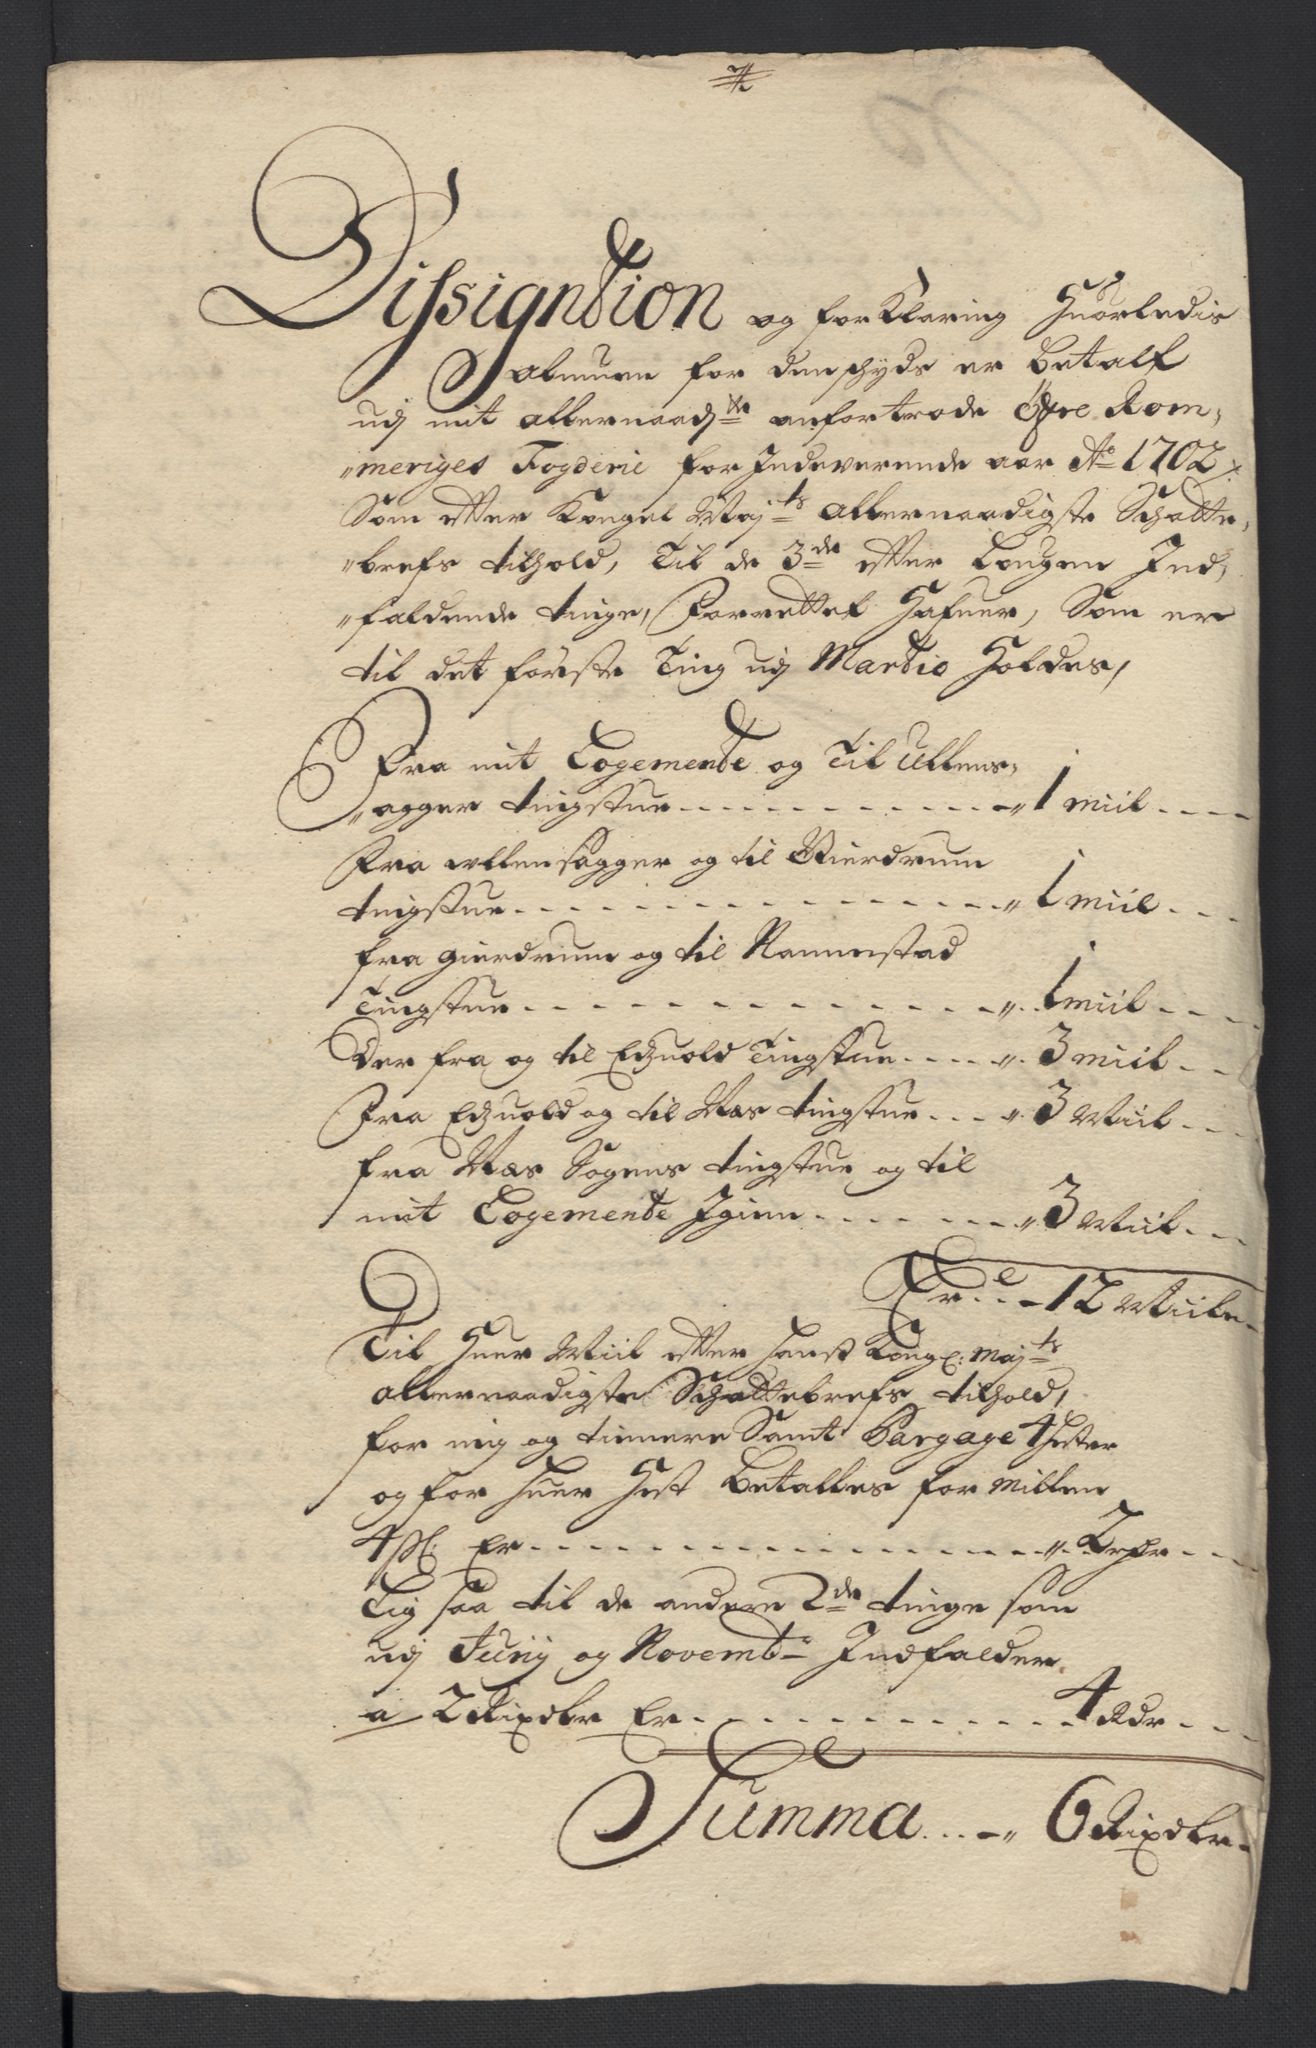 Dissigntion og forklaring Huorledis
Almuen for denschyds er betalt
udj mit allernaadste anfortrode Öfre Rom,
"meriges Fogderie for Indeverende aar Ao 1702
Som efter Kongel Mayts allernaadigste Schatte,
"brefs tilhold, til de 3de efter Lougen Ind,
"faldende tinge, Forrettet hafuer, Som er
til det förste Ting udj Martio Holdes,
Fra mit Logemente og til Ullens,
"agger tingstue - - - " 1 miil - - -
Fra ullensagger og til Gierdrum
tingstue - - - " 1 miil - - -
fra gierdrum og til Nannestad
Tingstue - - - " 1 miil - - -
Der fra og til Edzuold Tingstue - - - " 3 miil - - -
Fra Edzuold og til Næs tingstue - - - " 3 Miil - - -
fra Næs Sogens tingstue og til
mit Logemente Igien - - - " 3 Miil - - -
Er - - - 12 Miile -
Til Huer Miil efter hanst Kongl: Mayts
allernaadigste Schattebrefs tilhold,
for mig og tienere Samt Bargage 4 hester
og for huer Hest betalles for Millen
4 sk: Er - - - " 2 rdr - - -
Lig saa til de andere 2de tinge som
udj Junij og Novembr Indfalder
a 2 Rixdlr Er - - - 4 Rdr - - -
Summa - - - " 6 Rixdlr -